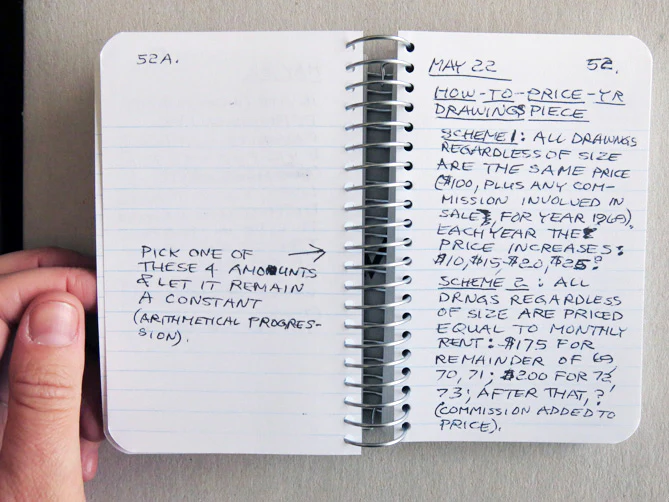 52A.
PICK ONE OF
THESE 4 AMOUNTS
& LET IT REMAIN
A CONSTANT
(ARITHMETICAL PROGRES-
SION).
MAY 22 52.
HOW-TO-PRICE-YR
DRAWINGS PIECE
SCHEME 1: ALL DRAWINGS
REGARDLESS OF SIZE
ARE THE SAME PRICE
($100, PLUS ANY COM-
MISSION INVOLVED IN
SALE, FOR YEAR 1969).
EACH YEAR THE
PRICE INCREASES:
$10, $15, $20, $25?
SCHEME 2: ALL
DRNGS REGARDLESS
OF SIZE ARE PRICED
EQUAL TO MONTHLY
RENT: $175 FOR
REMAINDER OF 69,
70, 71; $200 FOR 72,
73; AFTER THAT, ?
(COMMISSION ADDED TO
PRICE).